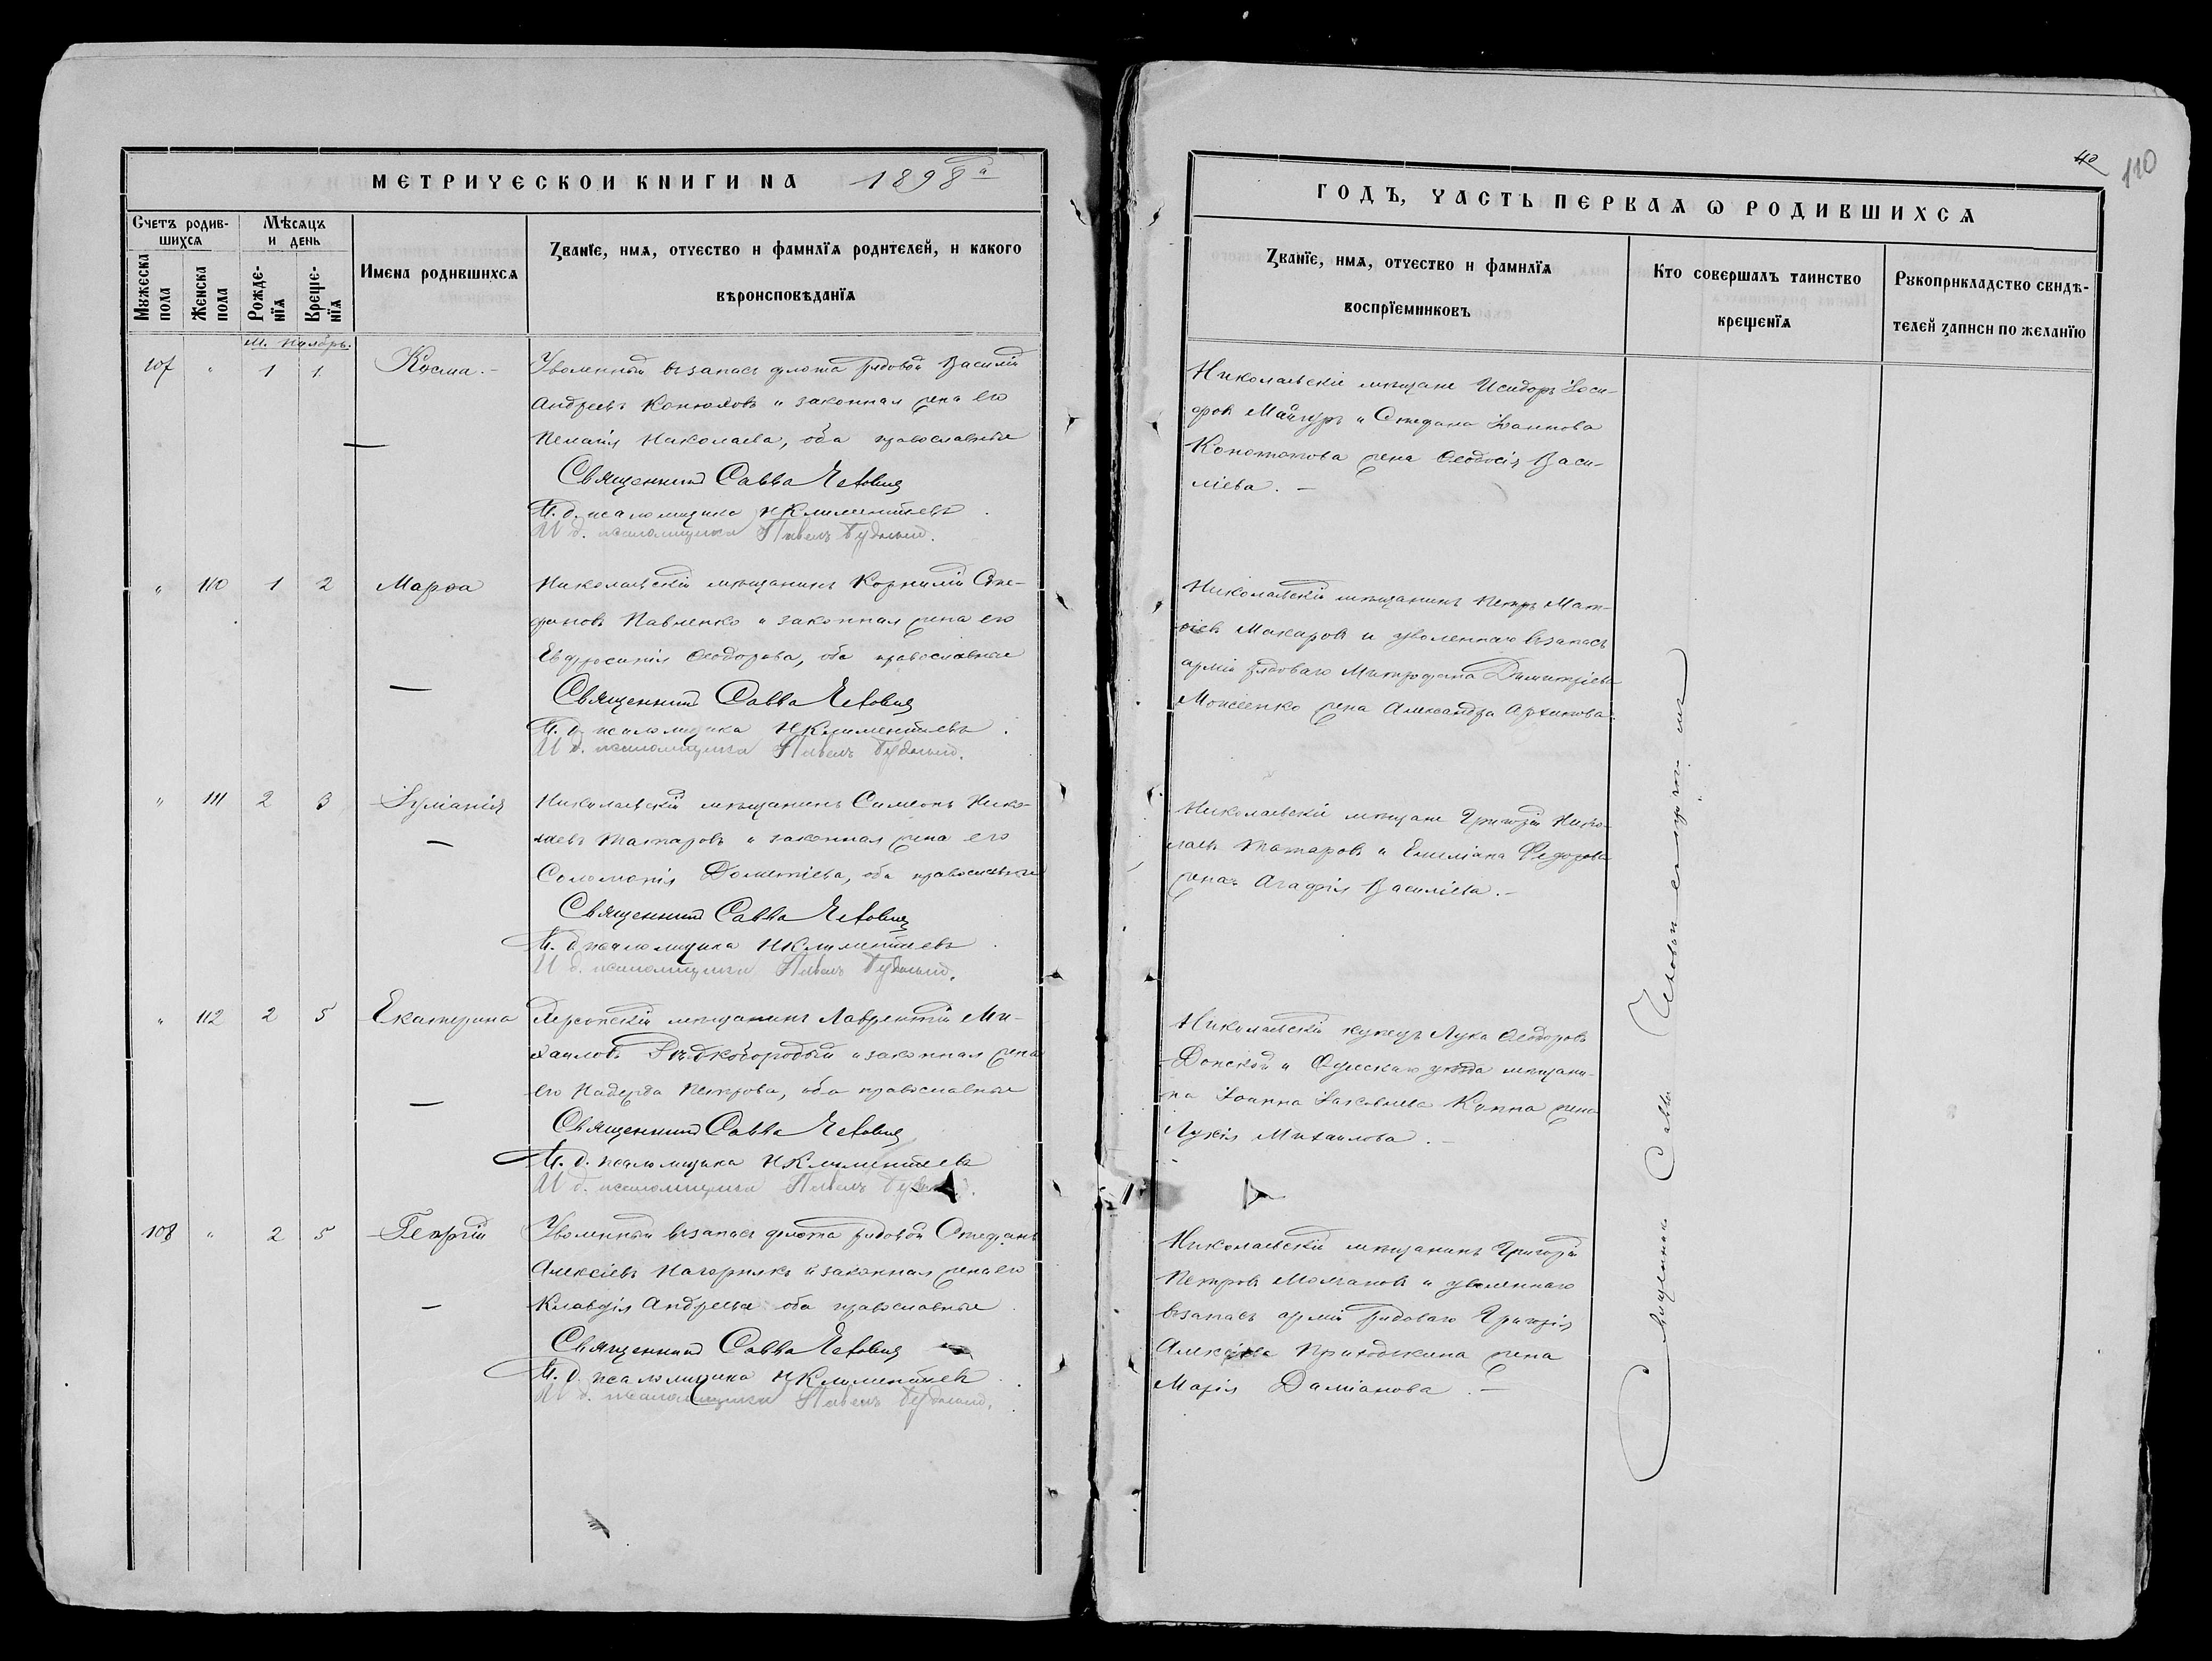 МЕТРИЧЕСКОИ КНИГИ НА 1898 а
Счетъ родив-
шихся
Мѣсяцъ
и день
Мужеска
пола
Женска
пола
Рожде-
нїя
Креще-
нїя
Имена родившихся
Званїе, имя, отчество и фамилїя родителей, и какого
вѣроисповѣданїя
М. Ноябрь.
107 " 1 1. Косма. -
Уволенный въ запасъ флота рядовой Василій
Андреевъ Коноховъ и законная жена его
Пелагія Николаева, оба православные
Священникъ Савва Чехович
И. д. псаломщика Н Климентьевъ
И д. псаломщика Павелъ Будный.
" 110 1 2 Марѳа
Николаевскій мѣщанинъ Корнилій Сте-
фановъ Павленко и законная жена его
Евфросинія Ѳеодорова, оба православные
Священникъ Савва Чехович
И. д. псаломщика Н Климентьевъ
И д. псаломщика Павелъ Будный.
" 111 2 3 Іуліанія
Николаевскій мѣщанинъ Симеонъ Нико-
лаевъ Татаровъ и законная жена его
Соломонія Дометіева, оба православные
Священникъ Савва Чехович
И. д псаломщика Н Климентьевъ
И д. псаломщика Павелъ Будный.
" 112 2 5 Екатерина
Херсонскій мѣщанинъ Лаврентій Ми-
хаиловъ Рѣдкобородый и законная жена
его Надежда Петрова, оба православные
Священникъ Савва Чехович
И. д. псаломщика Н Климентьевъ
И д. псаломщика Павелъ
108 " 2 5 Георгій
Уволенный въ запасъ флота рядовой Стефанъ
Алексіевъ Нагорнякъ и законная жена его
Клавдія Андреева оба православные
Священникъ Савва Чехович
И. д. псаломщика Н Климентьевъ
И д. псаломщика Павелъ Будный.
40
110
ГОДЪ, ЧАСТЬ ПЕРВАЯ Ѡ РОДИВШИХСЯ
Званїе, имя, отчество и фамилїя
воспрїемниковъ
Кто совершалъ таинство
крещенїя
Рукоприкладство свидѣ-
телей записи по желанїю
Николаевскіе мѣщане Исидоръ Іоси-
фовъ Майгуръ и Стефана Іоаннова
Конотопова жена Ѳеодосія Васи-
ліева. -
Николаевскій мѣщанинъ Петръ Мат-
ѳіевъ Макаровъ и уволеннаго въ запасъ
арміи рядоваго Митрофана Димитріева
Моисеенко жена Александра Архипова.
Николаевскіе мѣщане Григорій Нико-
лаевъ Татаровъ и Емиліана Федорова
жена Агафія Василіева. -
Николаевскій купецъ Лука Ѳеодоровъ
Донской и Одесскаго уѣзда мѣщани-
на Іоанна Іаковлева Куппа жена
Лукія Михаилова. -
Николаевскій мѣщанинъ Григорій
Петровъ Молчановъ и уволеннаго
въ запасъ арміи рядоваго Григорія
Алексіева Приходькина жена
Марія Даміанова. -
Священникъ Савва Чехович